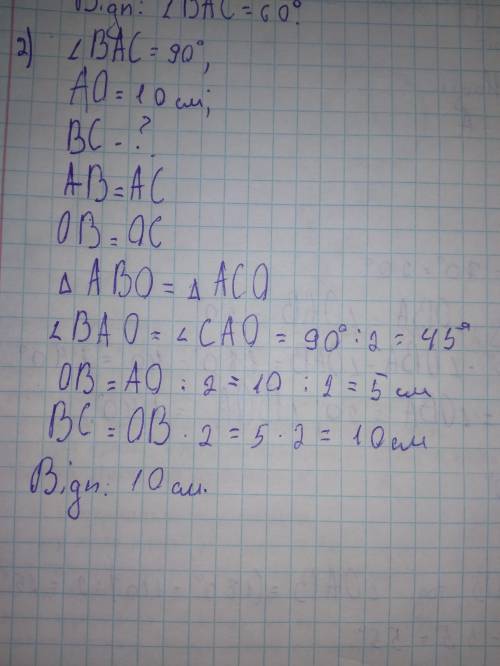 Відп: ∠BAC = 60°.
2) ∠BAC = 90°,
AO = 10 см;
BC - ?
AB = AC
OB = OC
△ ABO = △ ACO
∠BAO = ∠CAO = 90° : 2 = 45°
OB = AO : 2 = 10 : 2 = 5 см
BC = OB · 2 = 5 · 2 = 10 см
Відп: 10 см.